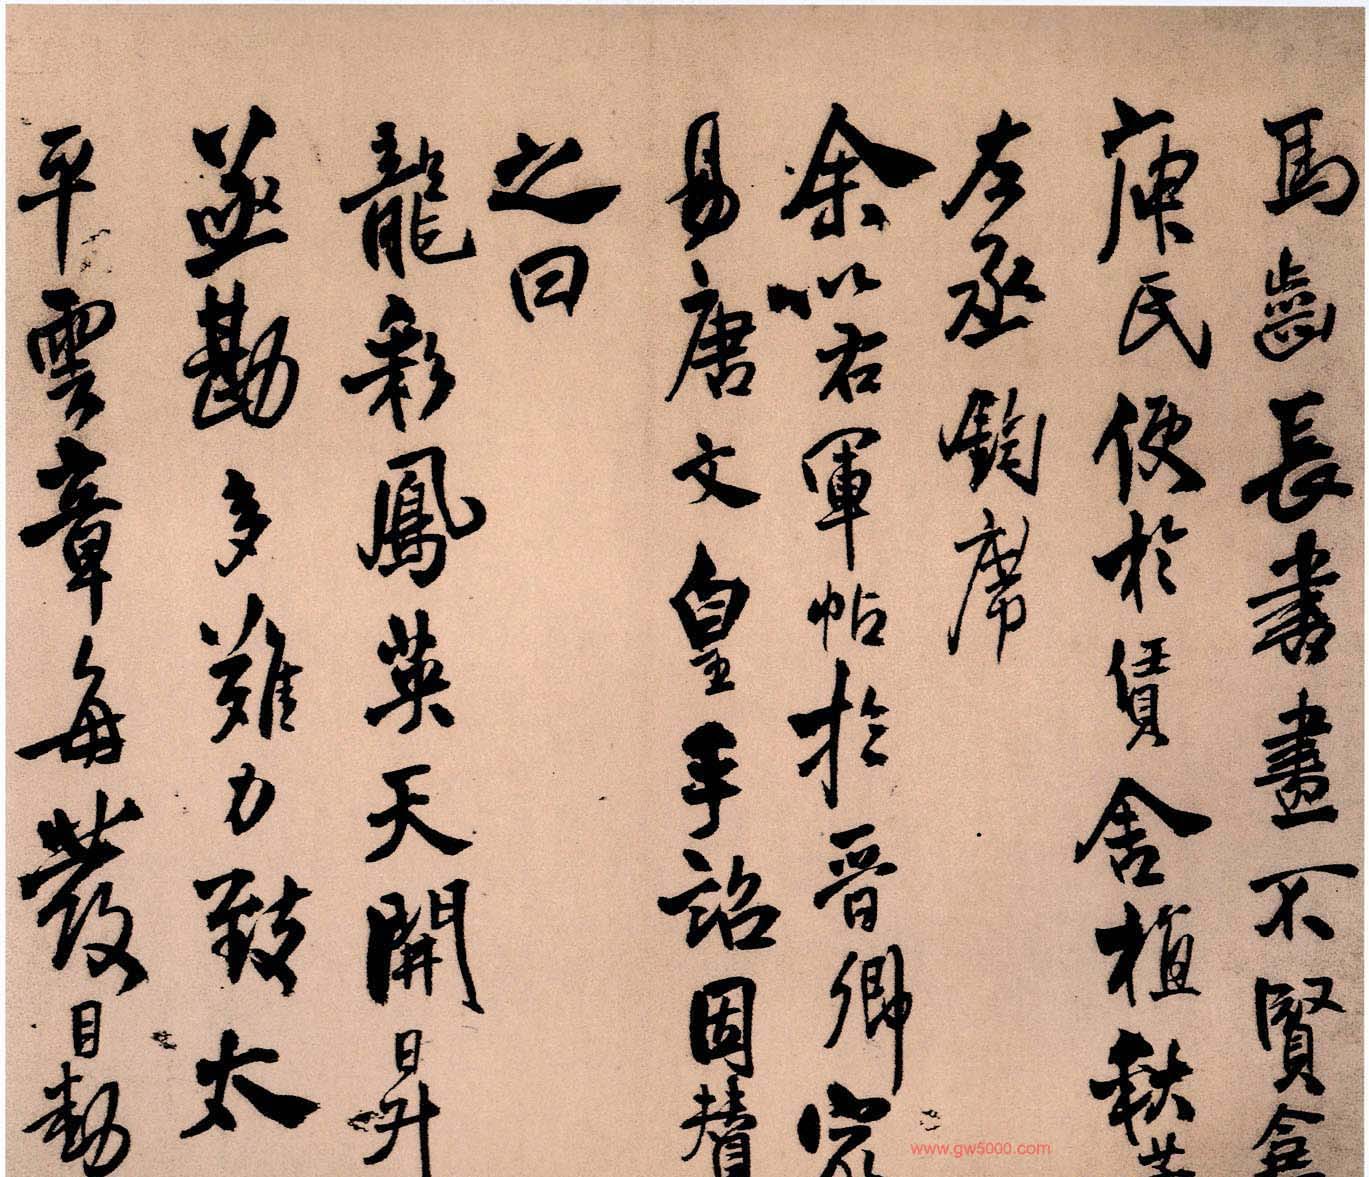 馬齒長書畫不賢
庾氏便於賃舍植秋
左丞鈞席
余以右軍帖於晉卿
易唐文皇手詔因贊
之曰
龍彩鳳英天開日升
亟戡多難力致太
平雲章每發目動
www.gw5000.com